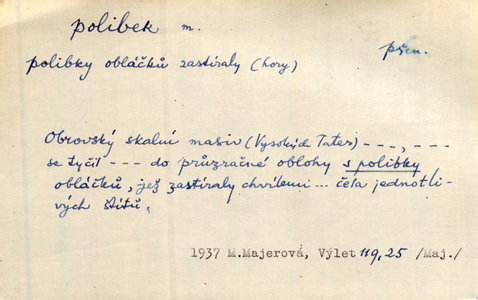 polibek m.
přen.
polibky obláčků zastíraly (hory)
Obrovský skalní masiv (Vysokých Tater) - - -, - - -
se tyčil - - - do průzračné oblohy s polibky
obláčků, jež zastíraly chvílemi ... čela jednotli-
vých štítů.
1937 M.Majerová, Výlet 119,25 /Maj./